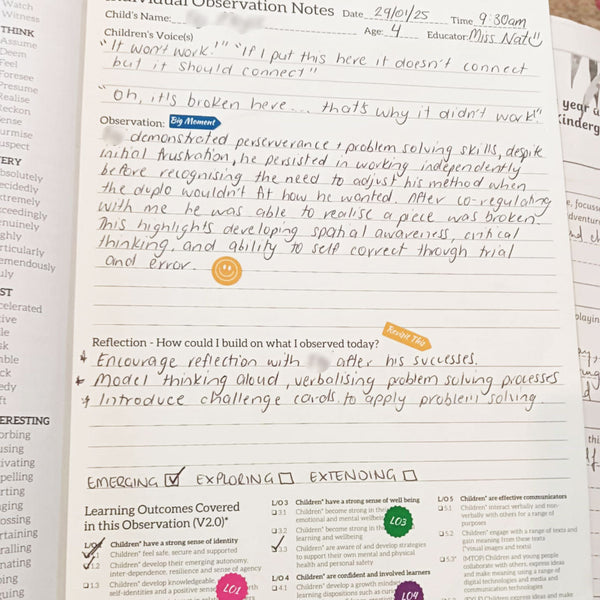 Individual Observation Notes Date 29/01/25 Time 9:30am
Child's Name: Age: 4 Educator: Miss Nat
Children's Voice(s)
"It won't work!" "If I put this here it doesn't connect
but it should connect"
"Oh, it's broken here... that's why it didn't work!"
Observation: Big Moment
demonstrated perserverance + problem solving skills, despite
initial frustration, he persisted in working independently
before recognising the need to adjust his method when
the duplo wouldn't fit how he wanted. After co-regulating
with me he was able to realise a piece was broken.
This highlights developing spatial awareness, critical
thinking, and ability to self correct through trial
and error.
Reflection - How could I build on what I observed today? Revisit This
Encourage reflection with after his successes.
Model thinking aloud, verbalising problem solving processes
Introduce challenge cards to apply problem solving.
EMERGING EXPLORING EXTENDING
Learning Outcomes Covered
in this Observation (V2.0)*
L/O Children* have a strong sense of identity
1.1 Children* feel safe, secure and supported
1.2 Children* develop their emerging autonomy,
inter-dependence, resilience and sense of agency
1.3 Children* develop knowledgeable,
self-identities and a positive sense
LO1
L/O 3 Children* have a strong sense of well being
3.1 Children* become strong in their
emotional and mental wellbeing
3.2 Children* become strong in
learning and wellbeing
3.3 Children* are aware of and develop strategies
to support their own mental and physical
health and personal safety
LO3
L/O 4 Children* are confident and involved learners
4.1 Children* develop a growth
learning dispositions such as
LO4
L/O 5 Children* are effective communicators
5.1 Children* interact verbally and non-
verbally with others for a range of
purposes
5.2 Children* engage with a range of texts and
gain meaning from these texts
*(visual images and texts)
5.3* (MTOP) Children and young people
collaborate with others, express ideas
and make meaning using a range of
digital technologies and media and
communication technologies
Children* express ideas and make
Watch
Witness
THINK
Assume
Deem
Feel
Foresee
Presume
Realise
Reckon
Sense
Surmise
Suspect